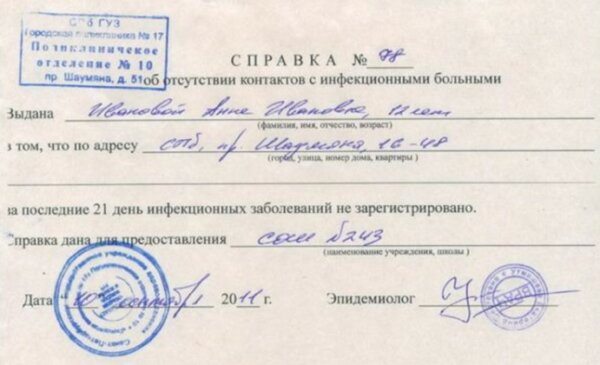 СПб ГУЗ
Городская поликлиника № 17
Поликлиническое
отделение № 10
пр. Шаумяна, д. 51
СПРАВКА № 78
об отсутствии контактов с инфекционными больными
Выдана Ивановой Анне Ивановне, 12 лет
(фамилия, имя, отчество, возраст)
в том, что по адресу СПб, пр. Шаумяна, 16-48
(город, улица, номер дома, квартиры)
за последние 21 день инфекционных заболеваний не зарегистрировано.
Справка дана для предоставления сош №243
(наименование учреждения, школы)
Дата 10 сентября 2011 г. Эпидемиолог